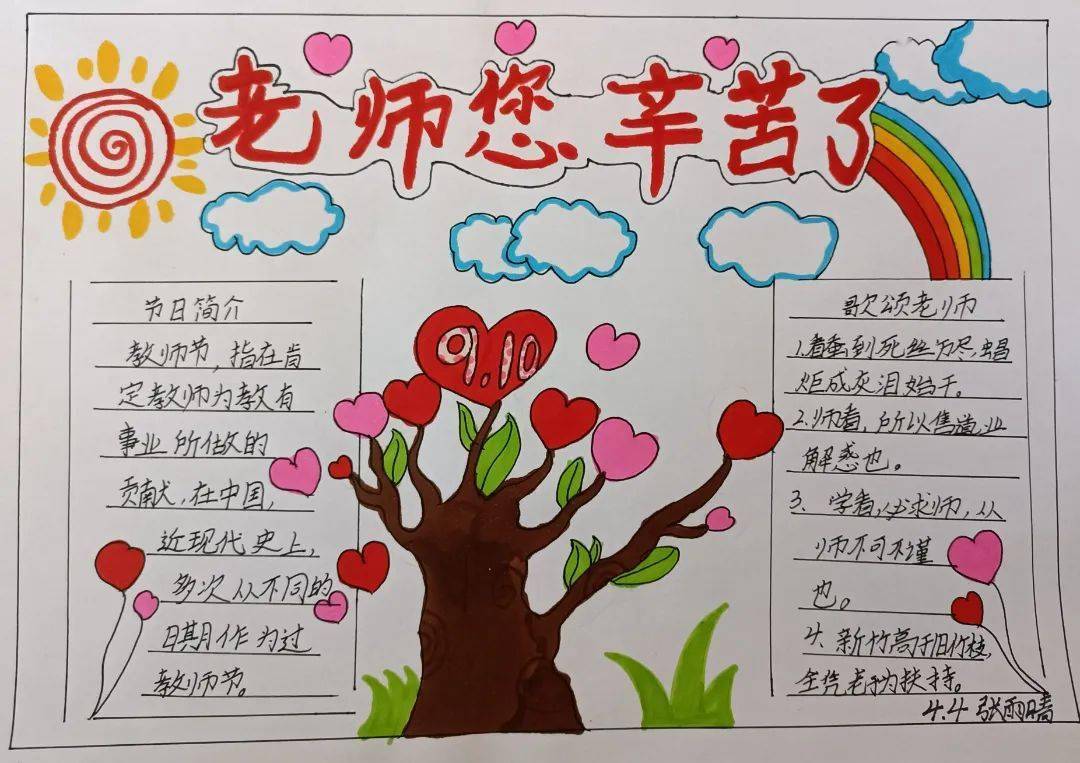 老师您辛苦了
9.10
节日简介
教师节，指在肯
定教师为教育
事业所做的
贡献，在中国，
近现代史上，
多次从不同的
日期作为过
教师节。
歌颂老师
1.春蚕到死丝方尽，蜡
炬成灰泪始干。
2.师者，所以传道业
解惑也。
3、学者必求师，从
师不可不谨
也。
4、新竹高于旧竹枝，
全凭老干为扶持。
4.4 张雨晴